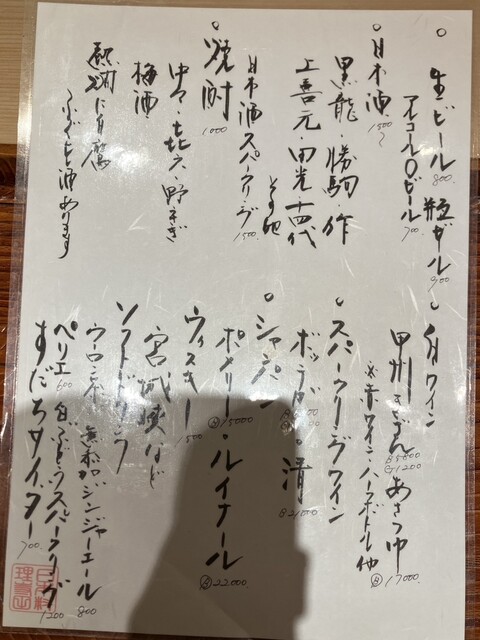 。生ビール 800 瓶ビール 900
アルコール0ビール 700
。日本酒 1500〜
黒龍・勝駒・作
上喜元・田光・十四代
その他
日本酒スパークリング 1500
。焼酎 1000
中々・㐂六・野うさぎ
梅酒
ふぐひれ酒あります
。白ワイン
甲州 B5000 G1200 あさつゆ B 17000
※赤ワイン・ハーフボトル他
。スパークリングワイン
ボッテガ・清 B 21000
。シャンパン
ポメリー B 15000 ・ルイナール B 22000
ウィスキー 1500
宮城峡など
ソフトドリンク
ウーロン茶 無添加ジンジャーエール 800
ペリエ 600 白ぶどうスパークリング 1200
すだちサイダー 700